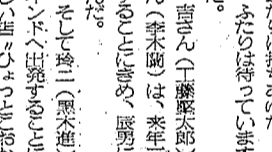 ふたりは待っています
吉さん(工藤堅太郎)
ん(李木蘭)は、来年
ることにきめ、辰男に
んだ。
そして玲二(黒木進)
ンドへ出発することに
しい店〃ひょっとこおか